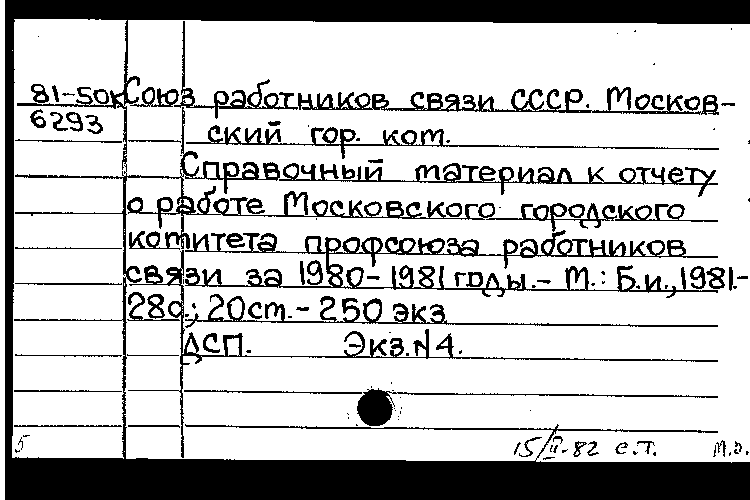 81-50к Союз работников связи СССР. Москов-
6293 ский гор. ком.
Справочный материал к отчету
о работе Московского городского
комитета профсоюза работников
связи за 1980-1981 годы.- М.: Б.и., 1981.-
28с.; 20см.- 250 экз
ДСП. Экз.N4.
5 15/II-82 е.т. М.О.